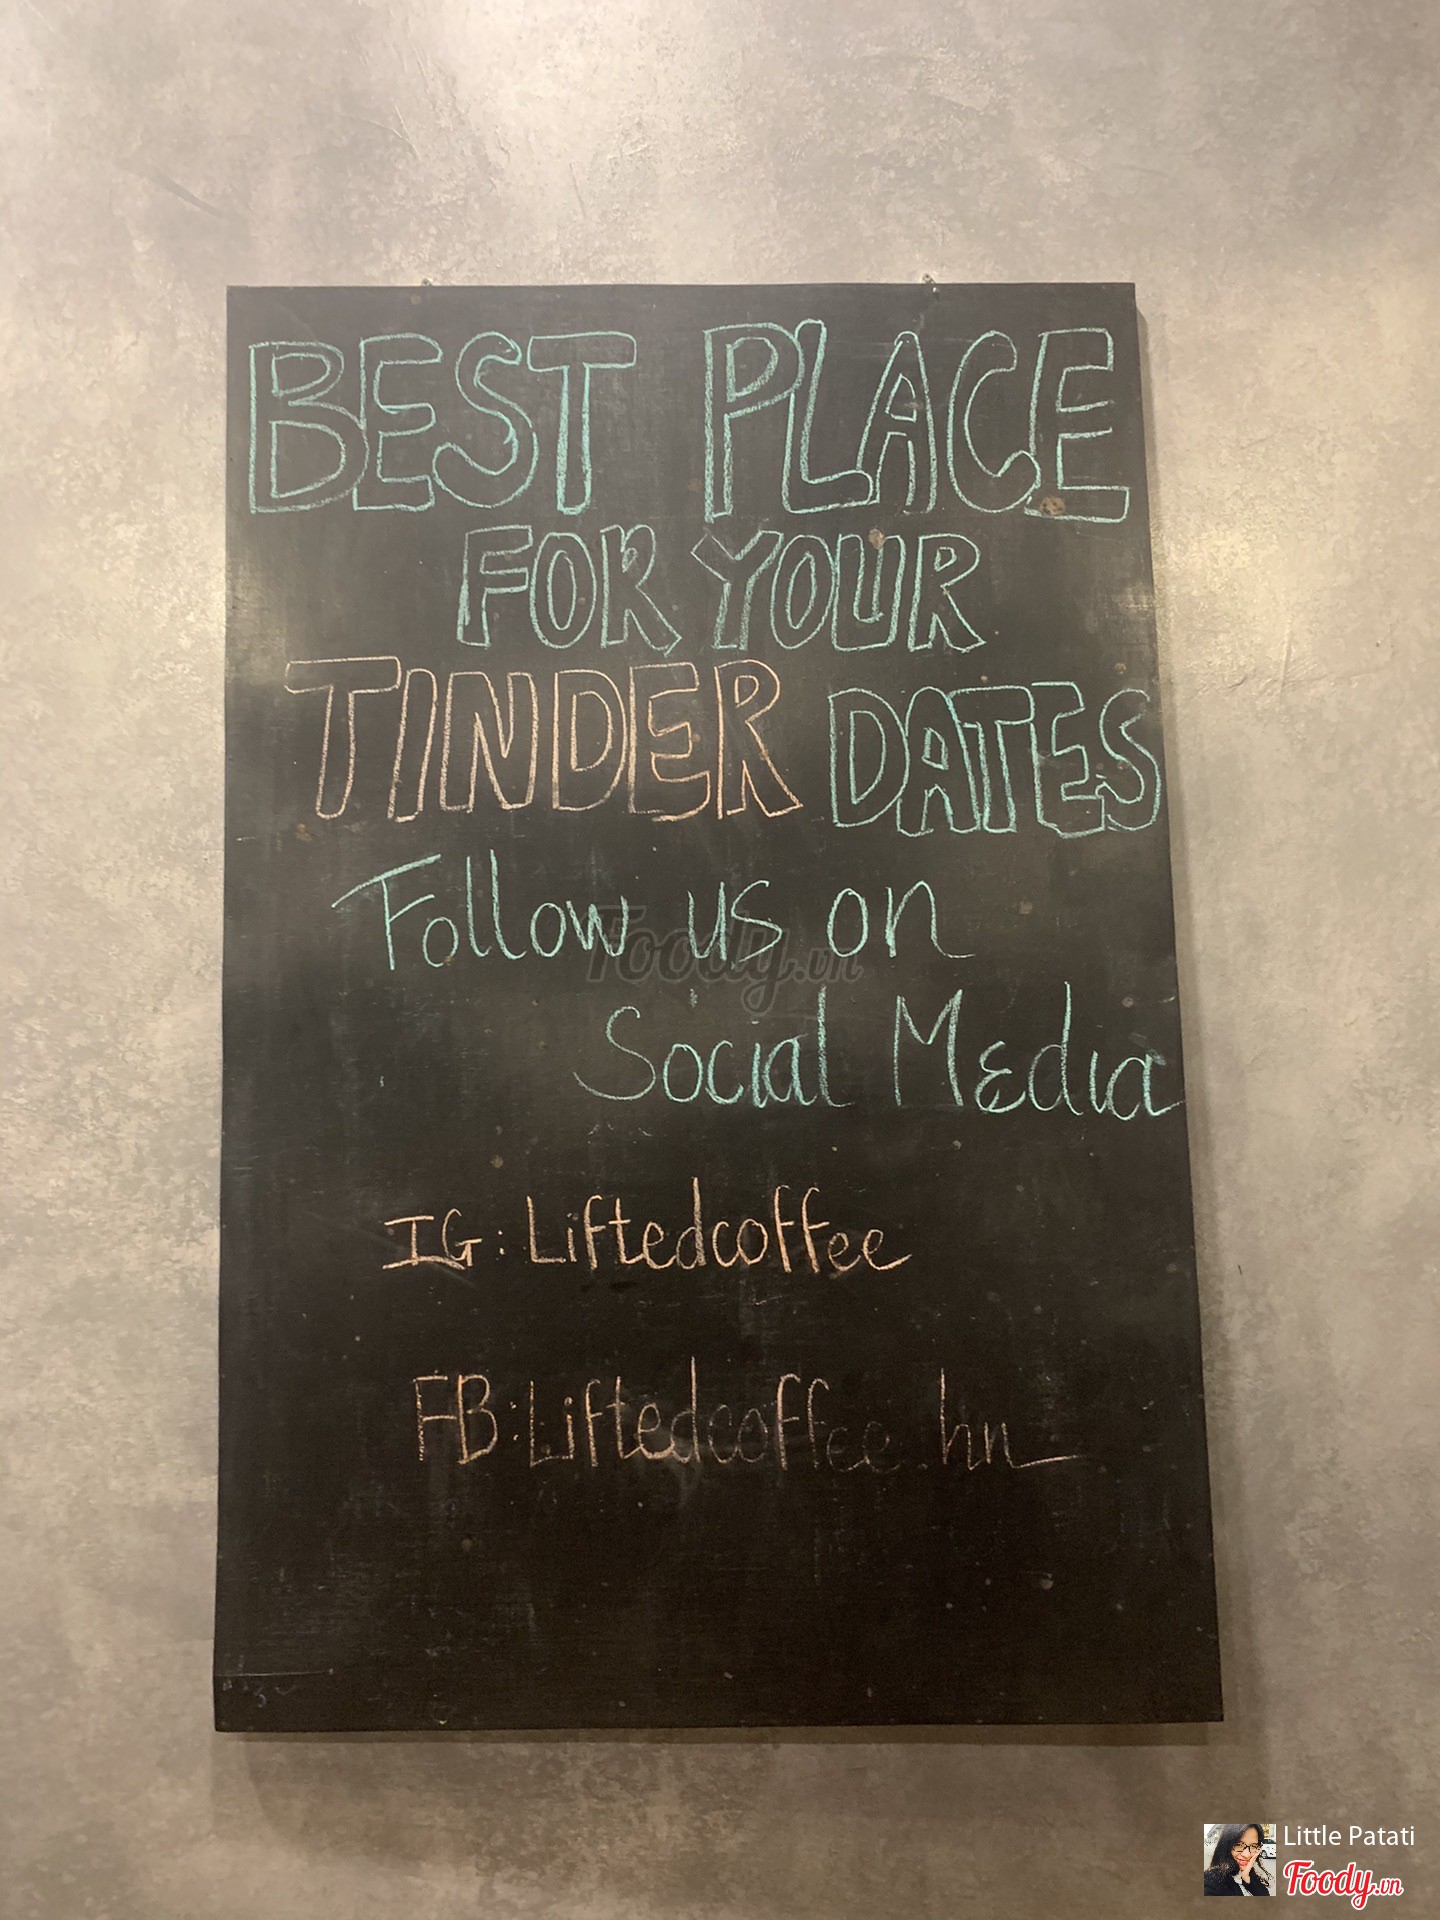 BEST PLACE
FOR YOUR
TINDER DATES
Follow us on
Foody.vn
Social Media
IG: Liftedcoffee
FB: Liftedcoffee.hn
Little Patati
Foody.vn